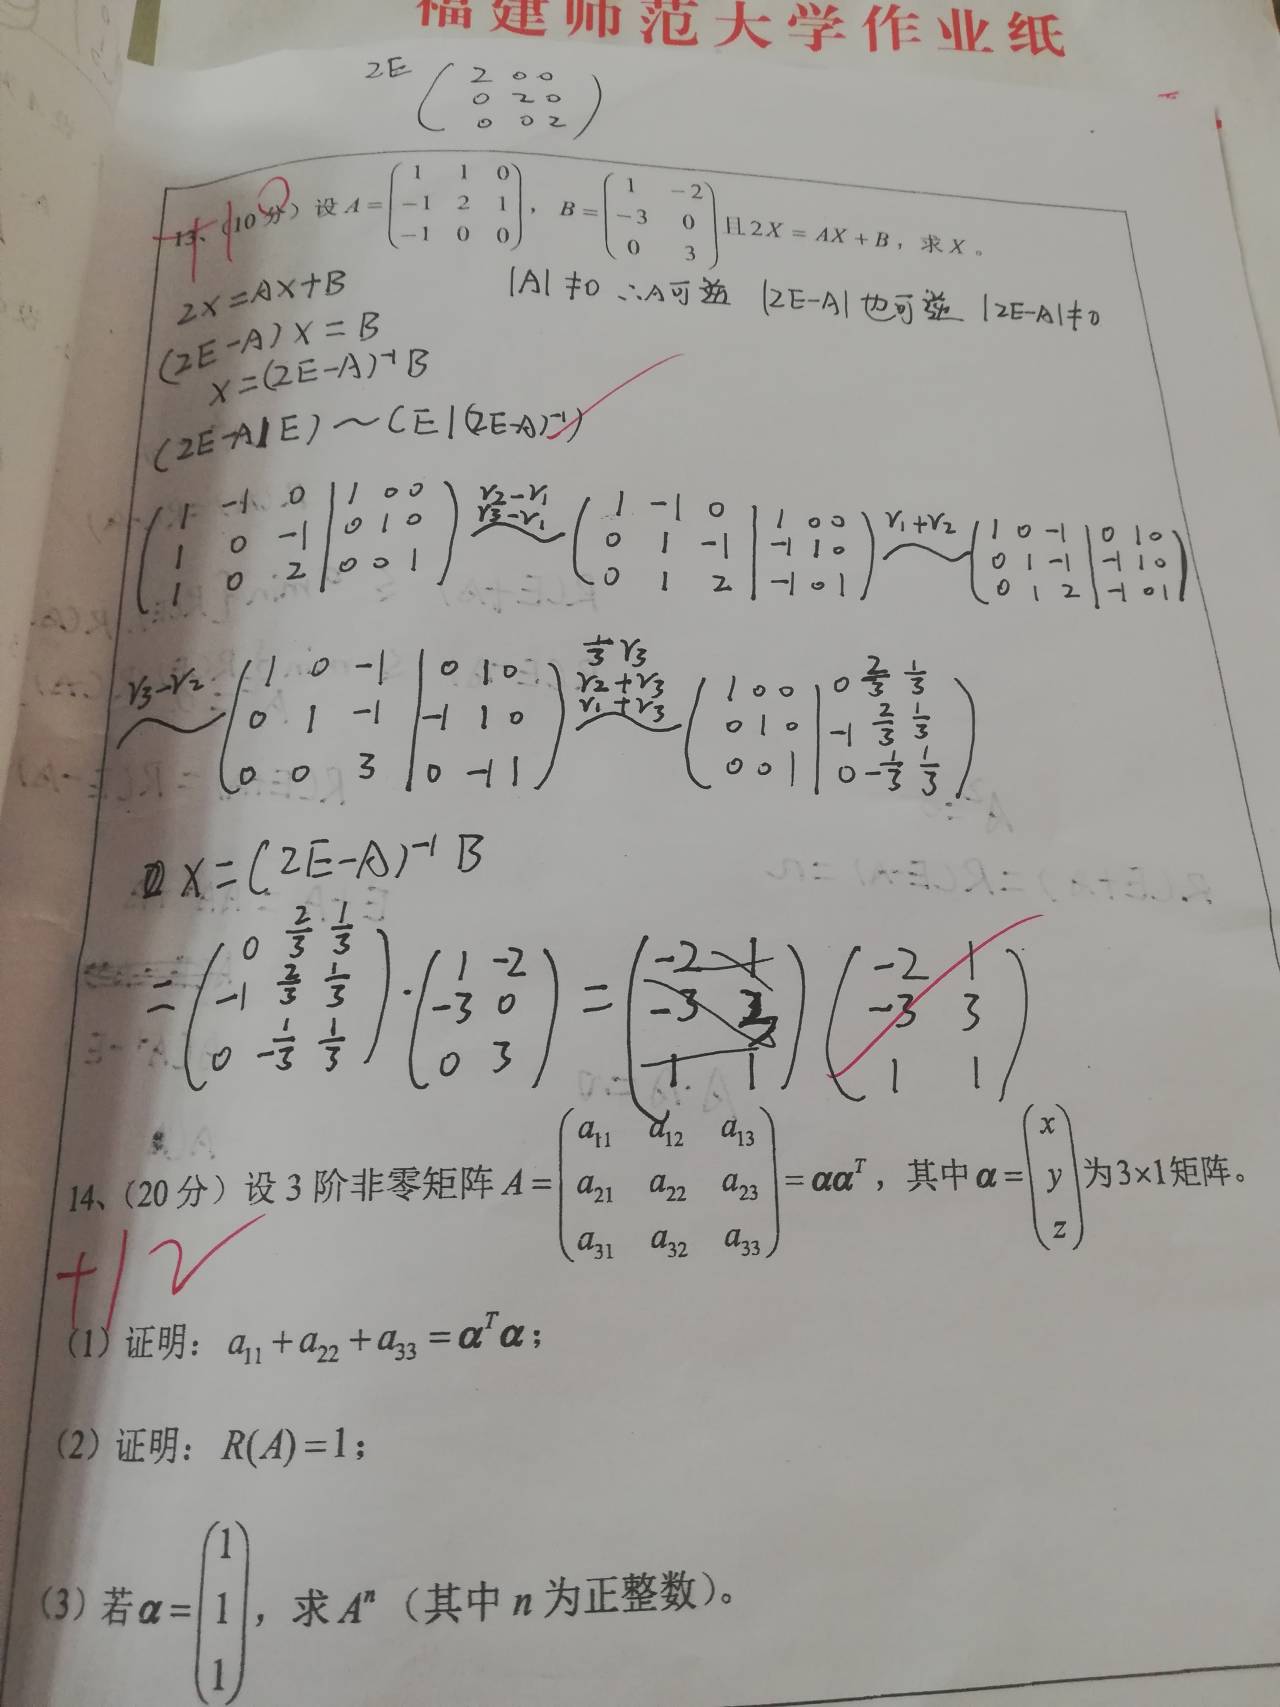 福建师范大学作业纸
2E ( 2 0 0
0 2 0
0 0 2 )
+10
13、(10分) 设 A = ( 1 1 0
-1 2 1
-1 0 0 ), B = ( 1 -2
-3 0
0 3 ) 且 2X = AX + B, 求 X。
2X=AX+B
|A|≠0 ∴A可逆 |2E-A|也可逆 |2E-A|≠0
(2E-A)X=B
X=(2E-A)⁻¹B
(2E-A|E)~(E|(2E-A)⁻¹)
( 1 -1 0 | 1 0 0
1 0 -1 | 0 1 0
1 0 2 | 0 0 1 ) r2-r1 r3-r1 ( 1 -1 0 | 1 0 0
0 1 -1 | -1 1 0
0 1 2 | -1 0 1 ) r1+r2 ( 1 0 -1 | 0 1 0
0 1 -1 | -1 1 0
0 1 2 | -1 0 1 )
r3-r2 ( 1 0 -1 | 0 1 0
0 1 -1 | -1 1 0
0 0 3 | 0 -1 1 ) 1/3 r3 r2+r3 r1+r3 ( 1 0 0 | 0 2/3 1/3
0 1 0 | -1 2/3 1/3
0 0 1 | 0 -1/3 1/3 )
X=(2E-A)⁻¹B
= ( 0 2/3 1/3
-1 2/3 1/3
0 -1/3 1/3 ) · ( 1 -2
-3 0
0 3 ) = ( -2 1
-3
1 1 ) ( -2 1
-3 3
1 1 )
14、(20分) 设 3 阶非零矩阵 A = ( a₁₁ a₁₂ a₁₃
a₂₁ a₂₂ a₂₃
a₃₁ a₃₂ a₃₃ ) = ααᵀ, 其中 α = ( x
y
z ) 为 3×1 矩阵。
+12
(1) 证明: a₁₁ + a₂₂ + a₃₃ = αᵀα;
(2) 证明: R(A) = 1;
(3) 若 α = ( 1
1
1 ), 求 Aⁿ (其中 n 为正整数)。